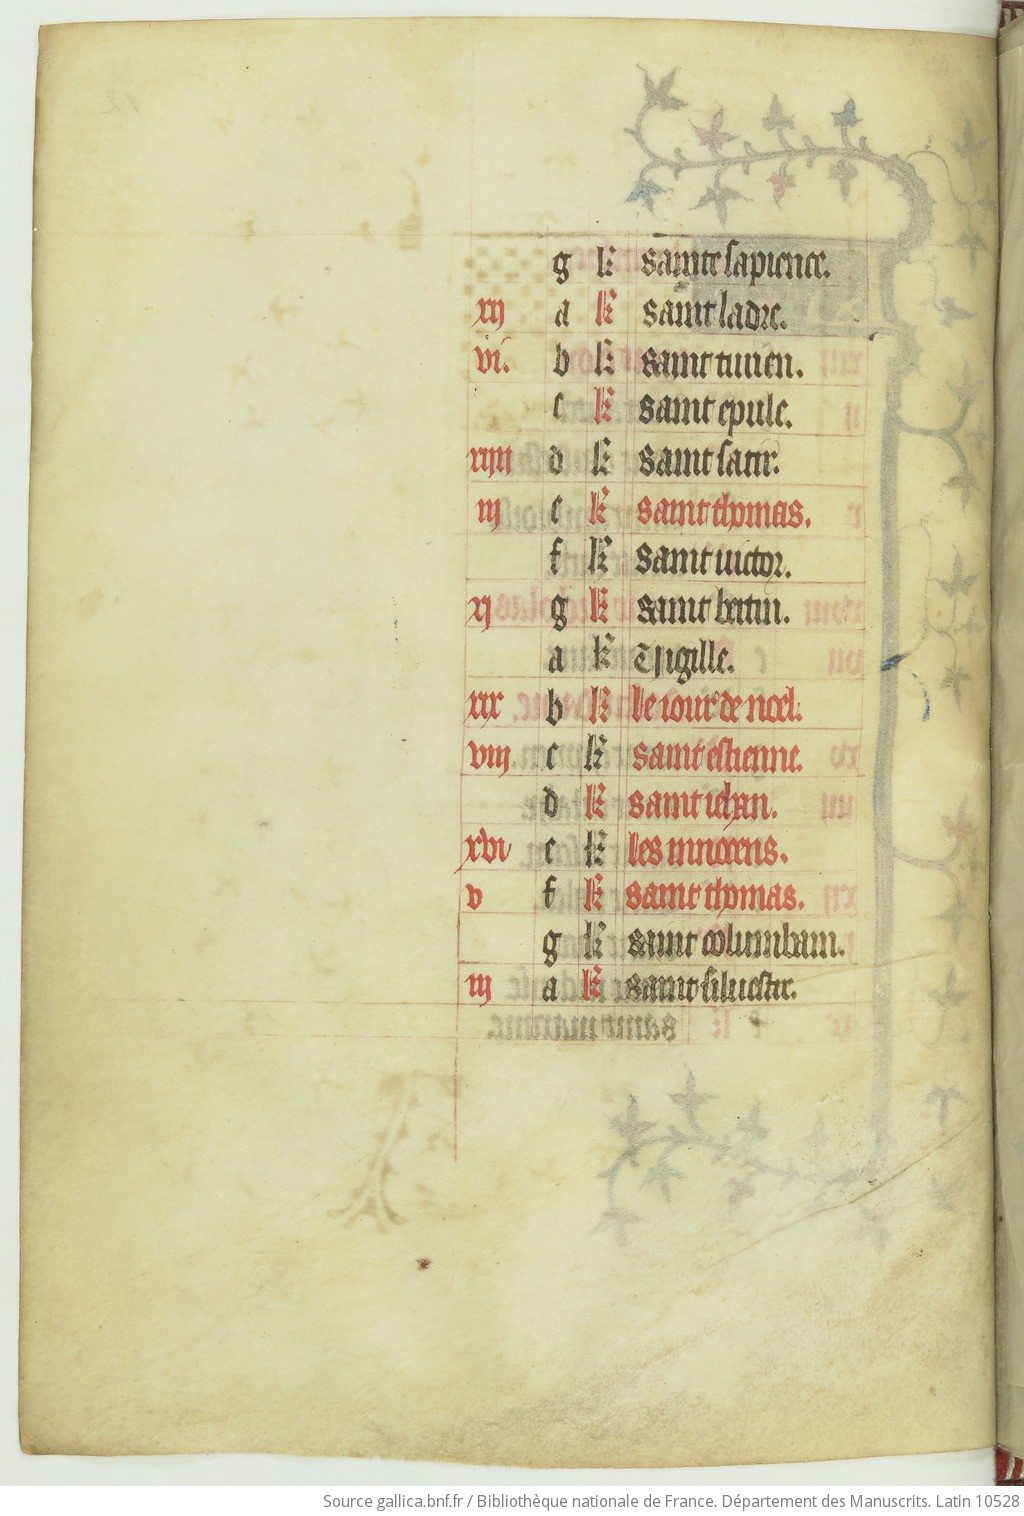 g k sainte sapience.
xij a k saint ladre.
vi. b k saint turien.
c k saint epule.
xiiij d k saint satir.
iij e k saint thomas.
f k saint uictor.
xj g k saint bertin.
a k vigille.
xix b k le iour de noel.
viij c k saint estienne.
d k saint iehan.
xvi e k les innocens.
v f k saint thomas.
g k saint columbam.
iij a k saint siluestre.
Source gallica.bnf.fr / Bibliothèque nationale de France. Département des Manuscrits. Latin 10528